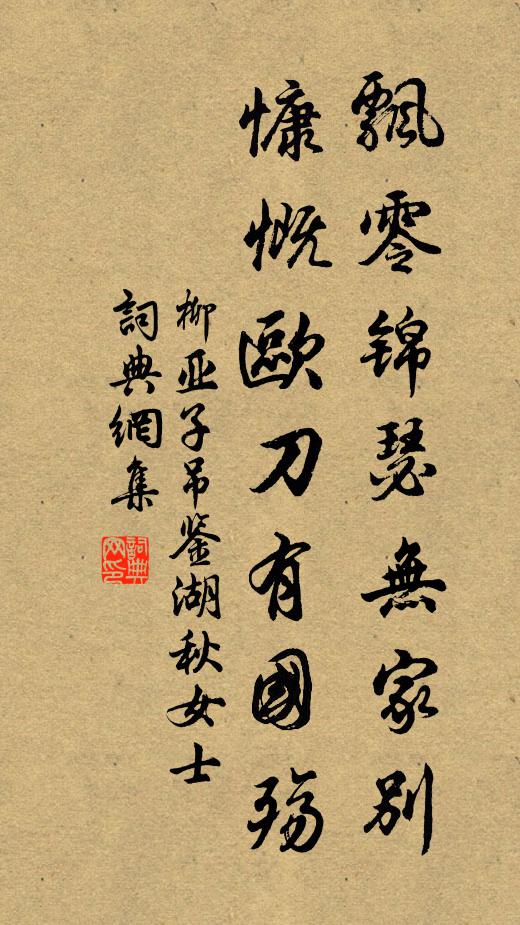 飄零锦瑟無家別
慷慨歐刀有國殤
柳亚子吊鉴湖秋女士
詞典網集
詞典
网印